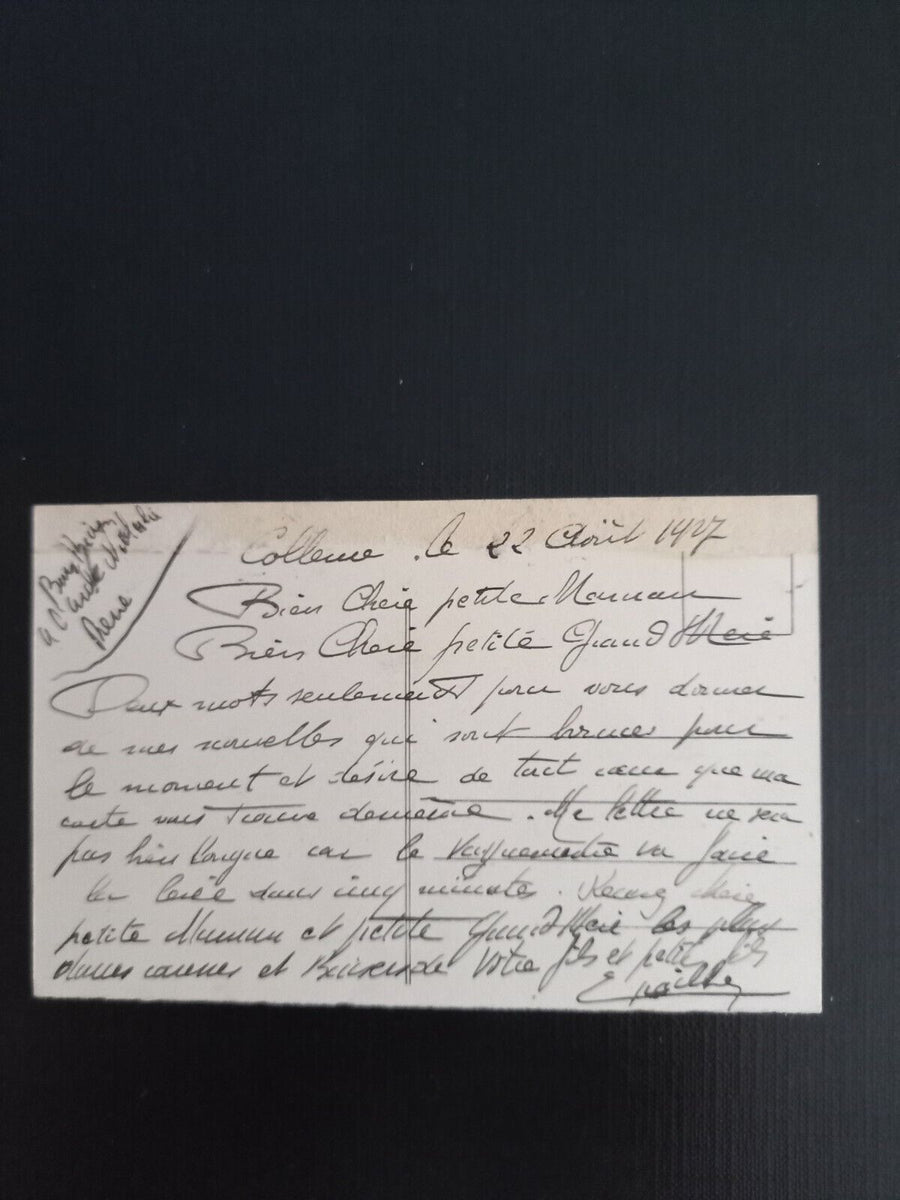 Bons Baisers
à Claude
René
Colleme le 22 Août 1927
Bien Chere petite Maman
Bien Chere petite Grand Mere
Deux mots seulement pour vous donner
de mes nouvelles qui sont bonnes pour
le moment et désire de tout cœur que ma
carte vous trouve de même. Ma lettre ne sera
pas bien longue car le Vaguemestre va faire
la levée dans cinq minutes. Recevez chere
petite Maman et petite Grand Mere les plus
douces caresses et Baisers de Votre fils et petit fils